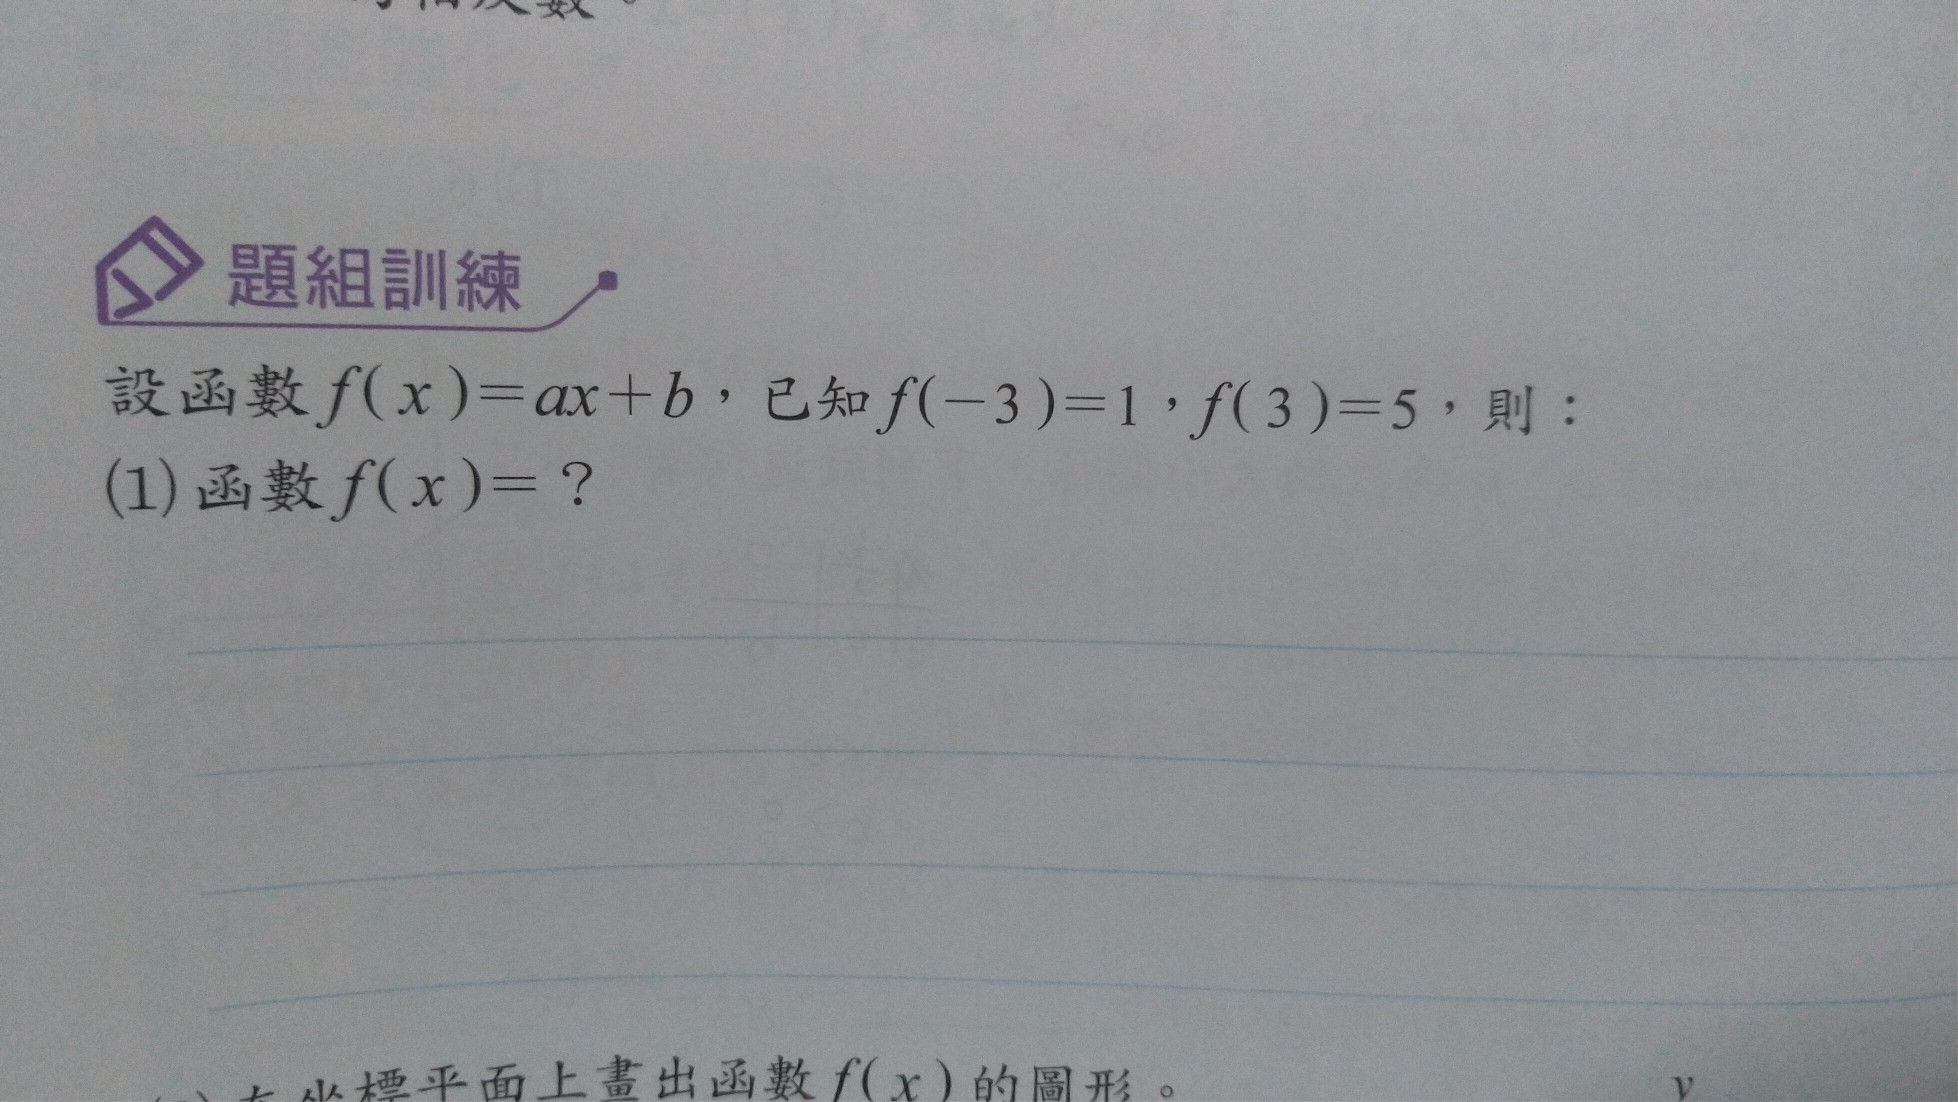 數。
題組訓練
設函數 f( x )=ax+b，已知 f(−3 )=1，f( 3 )=5，則：
(1) 函數 f( x )= ？
坐標平面上畫出函數 f( x ) 的圖形。
y